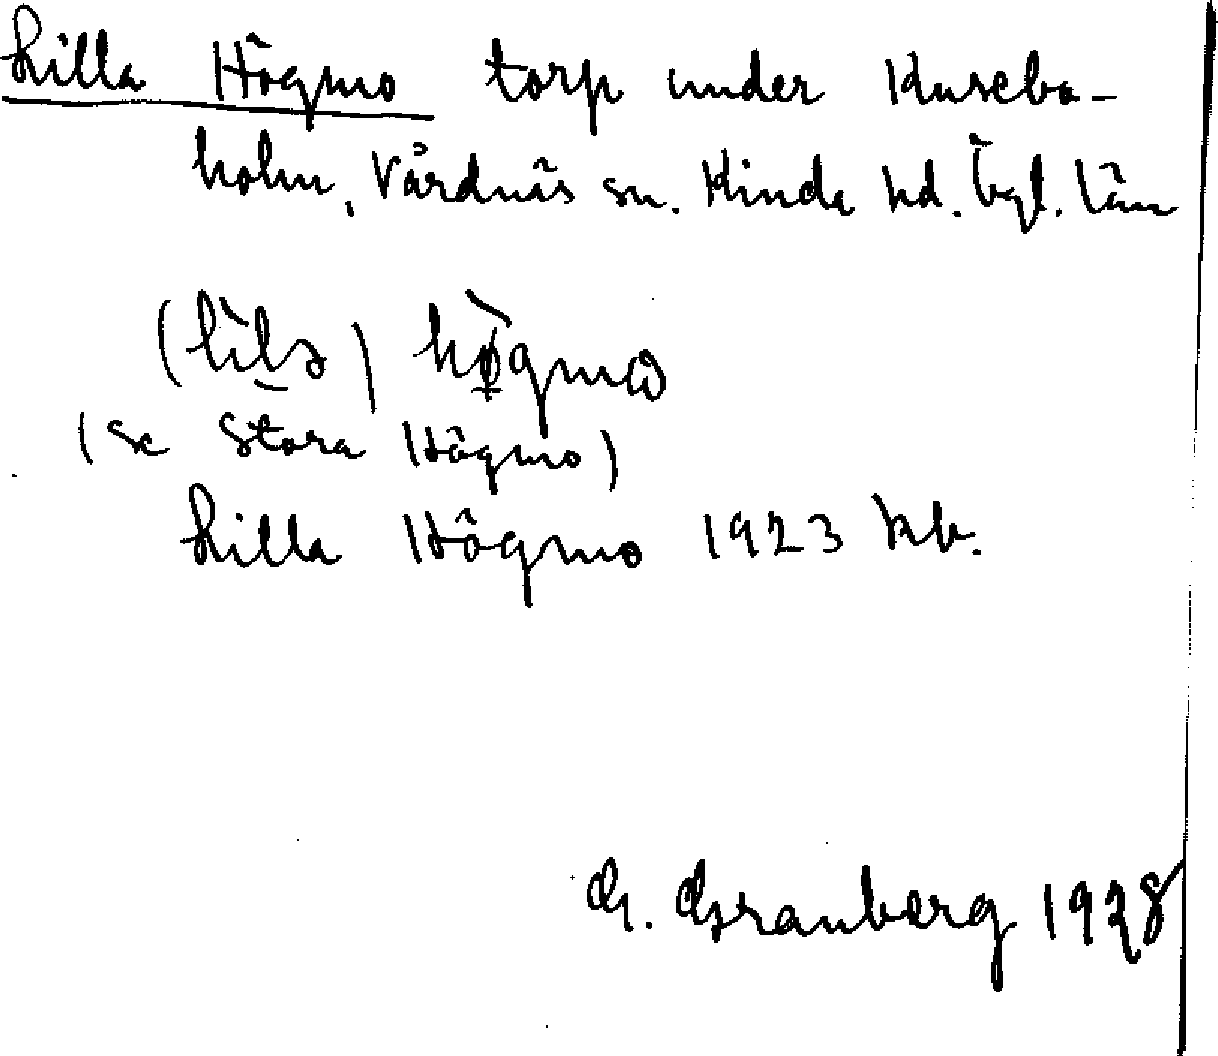 Lilla Högmo torp under Knsebo-
holm, Vårdnäs sn. Kinda hd. Ögl. län
(lìla) hø̀gmω
(se Stora Högmo)
Lilla Högmo 1923 kb.
G. Granberg 1928